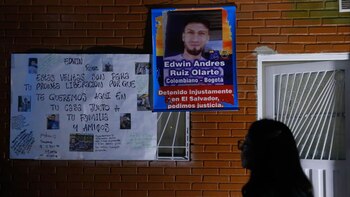 EDWIN
ESTAS VELITAS SON PARA
TU PRONTA LIBERACION PORQUE
TE QUEREMOS AQUI EN
TU CASA JUNTO A
TU FAMILIA
Y AMIGOS
Edwin Andres
Ruiz Olarte
Colombiano - Bogotá
Detenido injustamente
en El Salvador,
pedimos justicia.